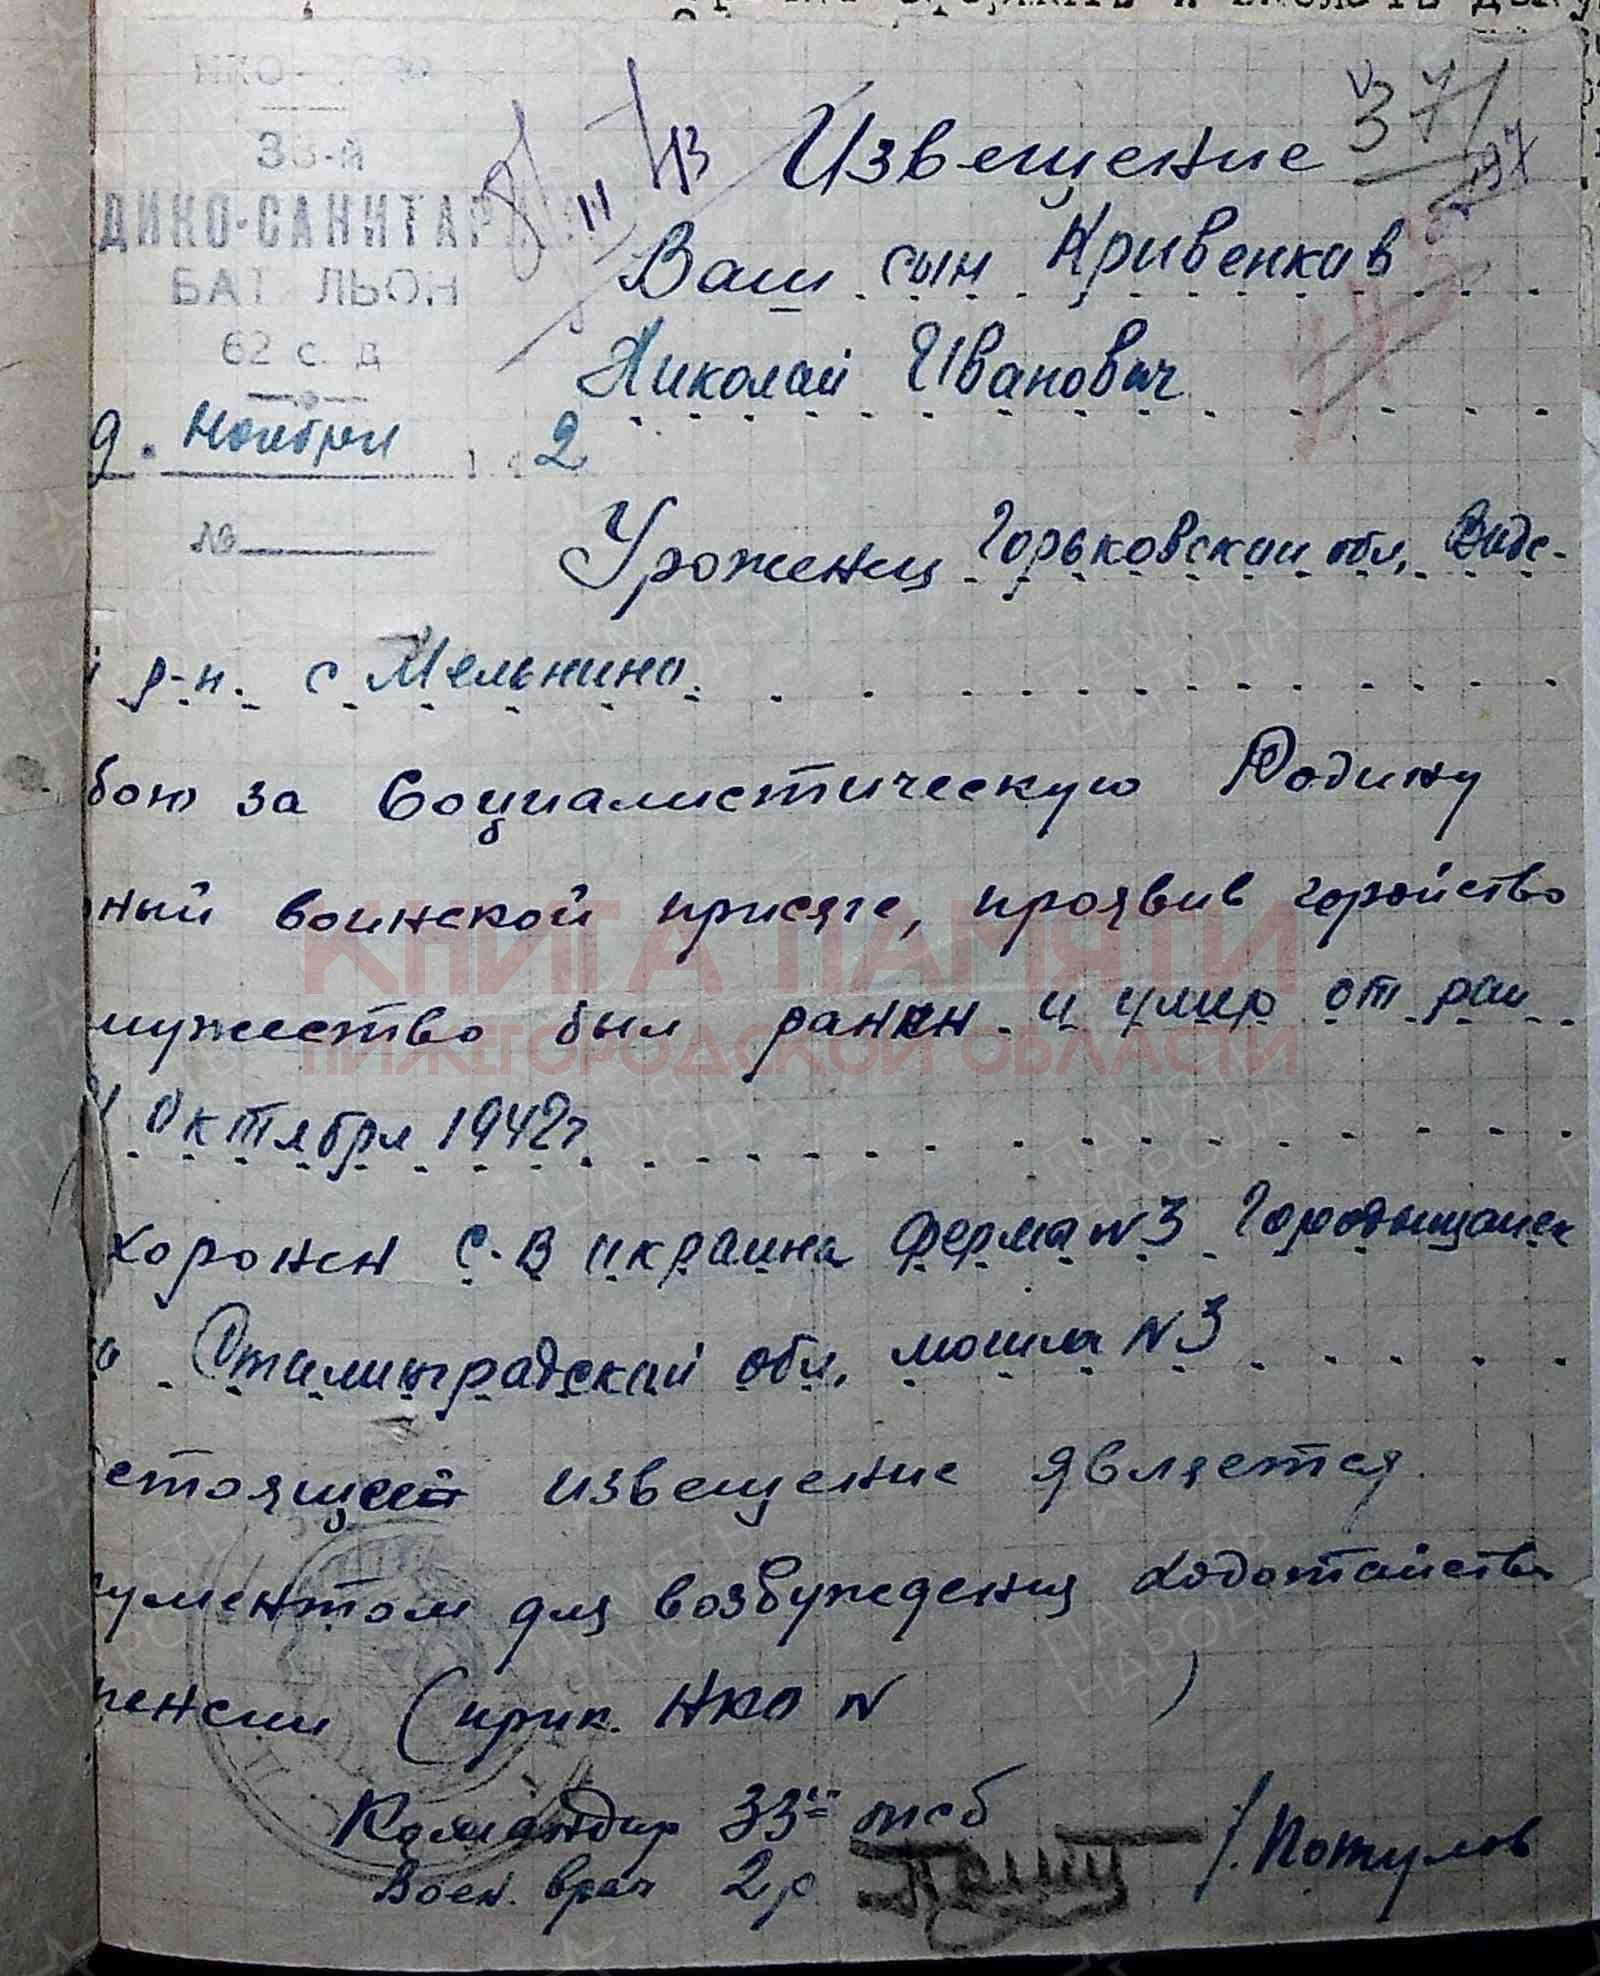 33-й
ДИКО-САНИТАР
БАТ ЛЬОН
62 с. д
9. Ноября 2
№
371
Извещение
Ваш сын Кривенков
Николай Иванович
Уроженец Горьковской обл,
р-н. с Мельнино
бою за Социалистическую Родину
ный воинской присяге, проявив геройство
мужество был ранен и умир от ран
Октября 1942г
хоронен С-В окраина Ферма N3 Городищанск
Сталинградской обл, могила N3
стоящее извещение является
ументом для возбуждения ходотайства
пенсии (прик. НКО N )
Командир 33й мсб
Воен. врач 2р /. Потулов
КНИГА ПАМЯТИ
НИЖЕГОРОДСКОЙ ОБЛАСТИ
ПАМЯТЬ НАРОДА